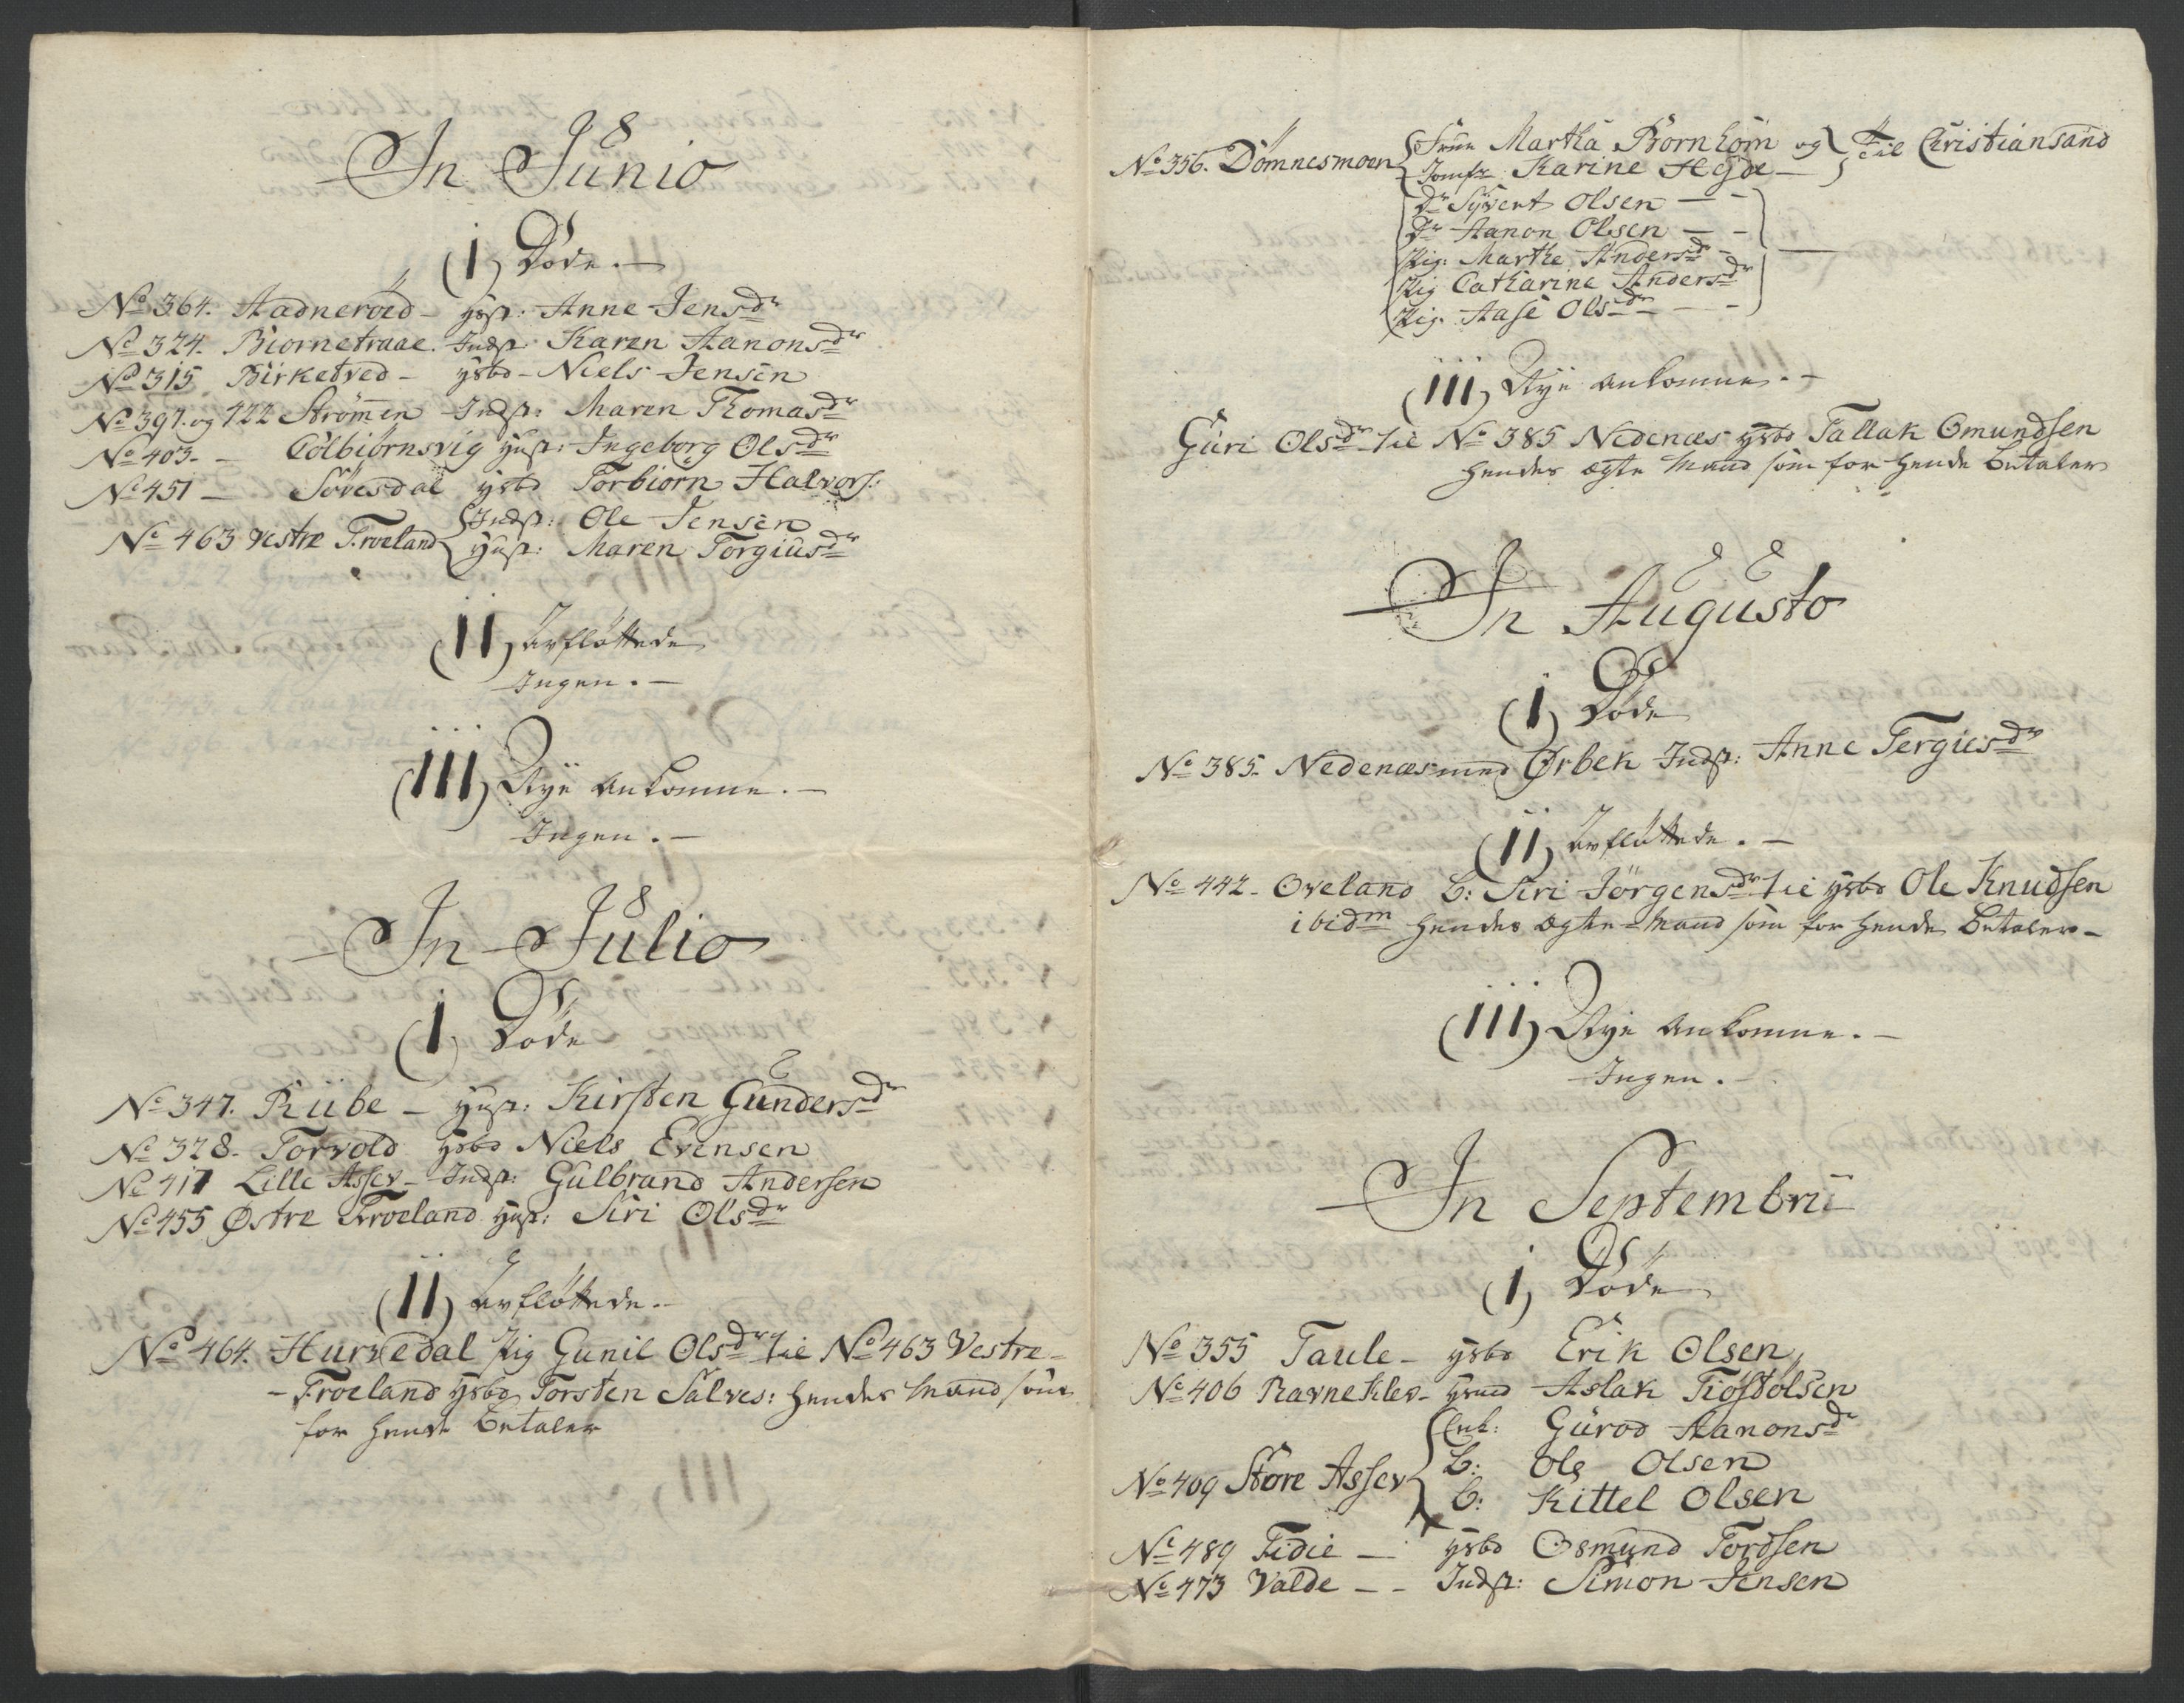 In Junio
(I) Døde. —
No 364. Aadneröed - hust: Anne Jensdr
No 324. Biornetraae. Indst: Karen Aanonsdr
No 315 Birketved - hsbd - Niels Jensen
No 391. og 422 Strömmen Indst: Maren Thomasdr
No 403. - Colbiörnsvig hust: Ingeborg Olsdr
No 451 — Sövesdal hsbd Torbiörn Halvors:
Indst: Ole Jensen
No 463 Vestre Froeland hust: Maren Torgiusdr
(II) avfløttede
Ingen. —
(III) Nye ankomne. —
Ingen. —
In Julio
(I) Døde
No 347. Riibe — hust: Kirsten Gundersdr
No 328. Torvold hsbd Niels Evensen
No 417 Lille Assev - Indst: Gulbrand Andersen
No 455 Østre Froeland hust: Siri Olsdr
(II) avfløttede. —
No 464. Hurvedal Pig Gunil Olsdr til No 463 Vestre -
- Froeland hsbd Torsten Salves: hendes Mand som
for hende betaler
No 356. Dömnesmoen Frue Martha Bornholm og Til Christiansand
Jomfr: Karine Heyde —
Dr Syvert Olsen — -
Dr Aanon Olsen — -
Pig: Marthe Andersdr -
Pig Catharine Andersdr
Pig. Aase Olsdr — -
(III) Nye ankomne. —
Guri Olsdr til No 385 Nedenæs hsbd Tallak Omundsen
hendes ægte Mand som for hende betaler
In Augusto
(I) Døde
No 385. Nedenæs med Ørbek Indst: Anne Tergiesdr
(II) avfløttede. —
No 442 - Oveland b: Siri Jörgensdr til hsbd Ole Knudsen
ibidm hendes ægte-Mand som for hende betaler -
(III) Nye ankomne. —
Ingen. -
In Septembrii
(I) Døde
No 355 Taule - hsbd Erik Olsen
No 406 Ravneklev - Aslak Tiöstolsen
Enk: Gurod Aanonsdr
No 409 Store Assev b: Ole Olsen
b: Kittel Olsen
No 489 Fidie — hsbd Osmund Tordsen
No 473 Valde - - Indst: Simon Jensen